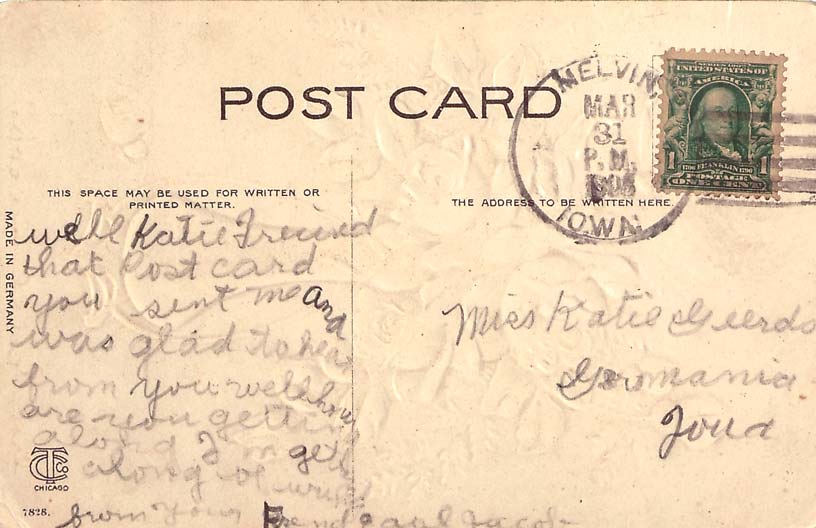 POST CARD
MELVIN,
MAR
31
P.M.
IOWA.
SERIES 1902
UNITED STATES OF
AMERICA
1 1706 FRANKLIN 1790 1
POSTAGE
ONE CENT
THIS SPACE MAY BE USED FOR WRITTEN OR
PRINTED MATTER.
THE ADDRESS TO BE WRITTEN HERE.
MADE IN GERMANY
well Katie Freiend
that Post card
you sent me and
was glad to hear
from you well how
are you getting
along I m
along
from your Frend
Miss Katie Geerds
Germania
Iowa
CTCo
CHICAGO
7828.